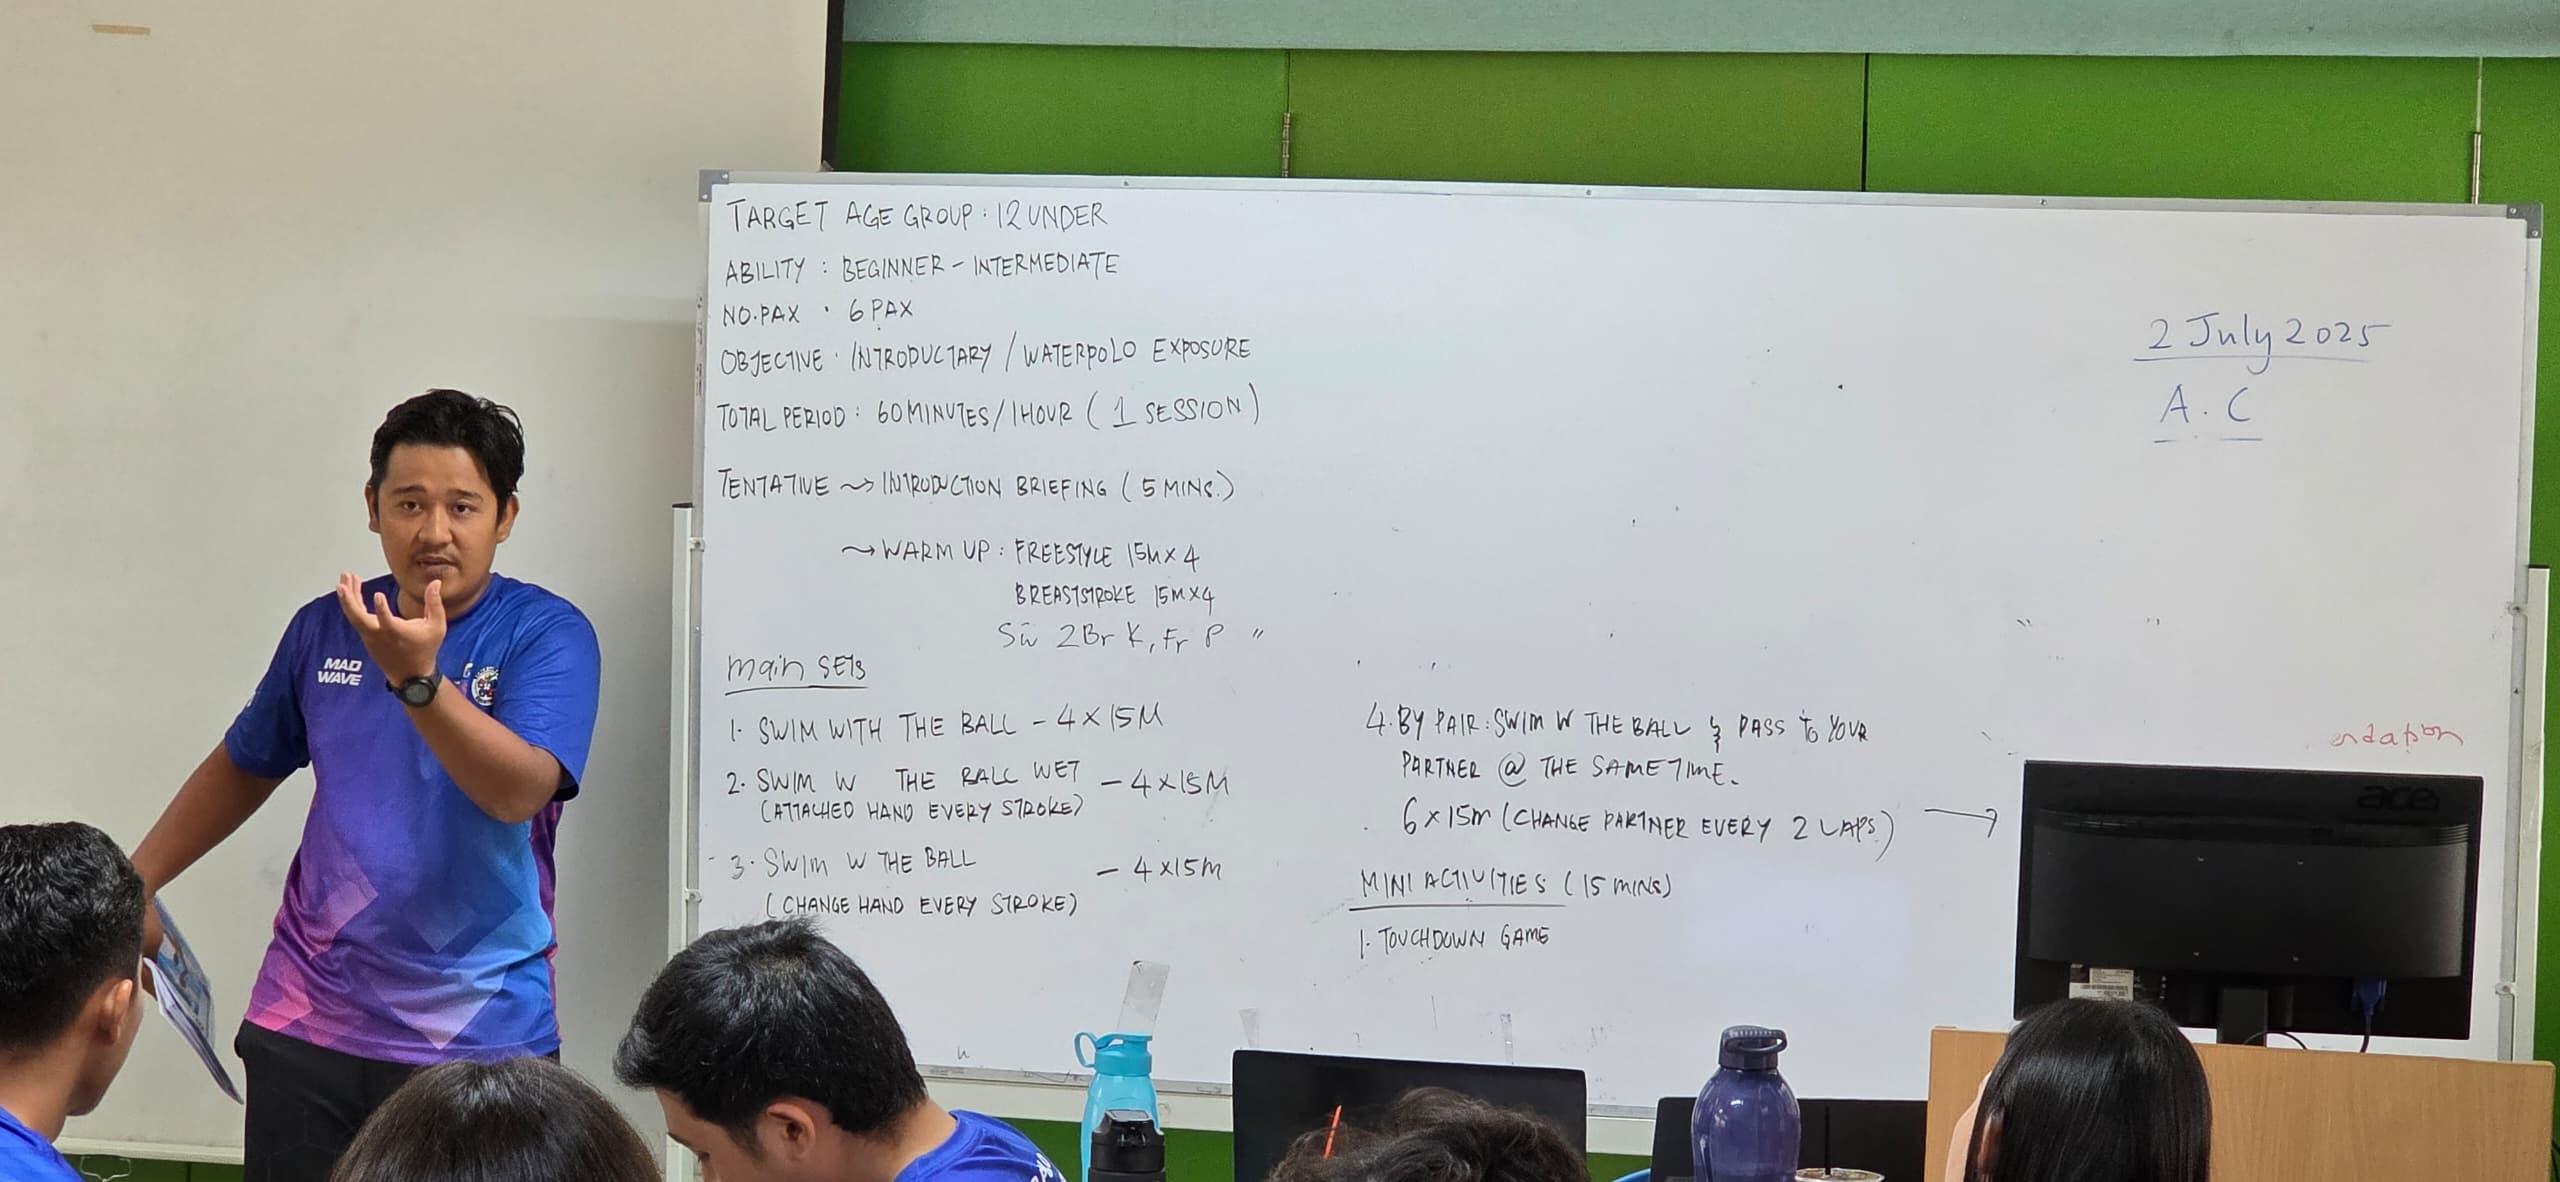 TARGET AGE GROUP : 12 UNDER
ABILITY : BEGINNER - INTERMEDIATE
NO. PAX : 6 PAX
OBJECTIVE : INTRODUCTARY / WATERPOLO EXPOSURE
TOTAL PERIOD : 60 MINUTES / 1 HOUR ( 1 SESSION )
TENTATIVE → INTRODUCTION BRIEFING ( 5 MINS. )
→ WARM UP : FREESTYLE 15M X 4
BREASTSTROKE 15M X 4
2 Br K, Fr P "
main SETS
1. SWIM WITH THE BALL - 4 X 15M
2. SWIM W THE BALL WET - 4 X 15M
(ATTACHED HAND EVERY STROKE)
3. SWIM W THE BALL - 4 X 15M
(CHANGE HAND EVERY STROKE)
4. BY PAIR : SWIM W THE BALL & PASS to YOUR
PARTNER @ THE SAME TIME.
6 X 15m (CHANGE PARTNER EVERY 2 LAPS.) →
MINI ACTIVITIES (15 MINS)
1. TOUCHDOWN GAME
2 July 2025
A. C
acer
MAD
WAVE